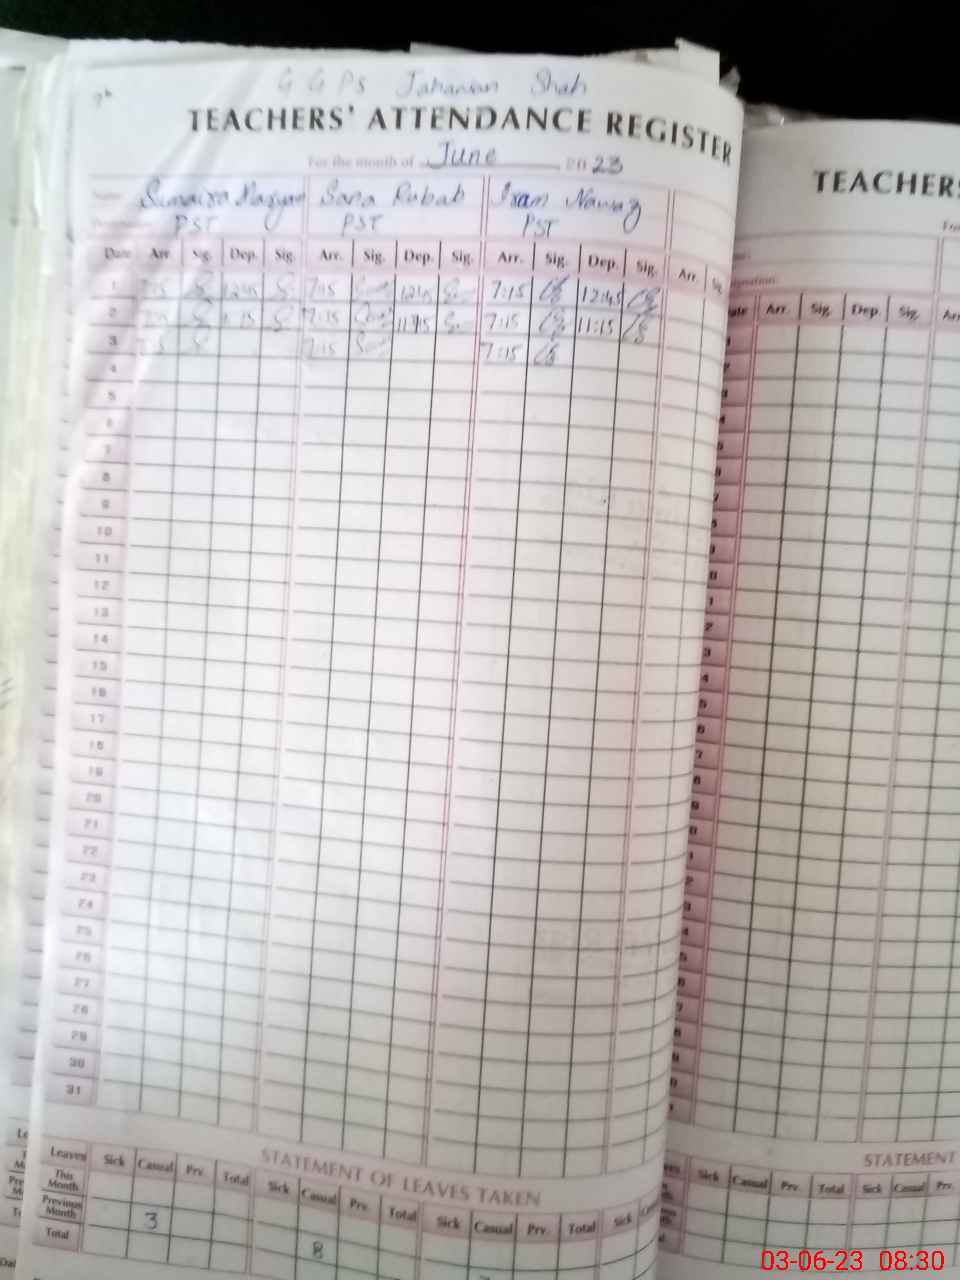 G G P S Jahanian Shah
TEACHERS' ATTENDANCE REGISTER
For the month of June 2023
Name Sumaira Maryam Sana Rubab Iram Nawaz
PST PST PST
Date Arr. Sig. Dep. Sig. Arr. Sig. Dep. Sig. Arr. Sig. Dep. Sig. Arr. Sig.
1 7:15 12:45 7:15 12:45 7:15 12:45
2 7:15 11:15 7:15 11:15 7:15 11:15
3 7:15 7:15 7:15
4
5
6
7
8
9
10
11
12
13
14
15
16
17
18
19
20
21
22
23
24
25
26
27
28
29
30
31
STATEMENT OF LEAVES TAKEN
Leaves Sick Casual Prv. Total Sick Casual Prv. Total Sick Casual Prv. Total Sick
This Month
Previous Month 3 8
Total
TEACHERS
Arr. Sig. Dep. Sig.
STATEMENT
Sick Casual Prv. Total Sick Casual Prv.
03-06-23 08:30